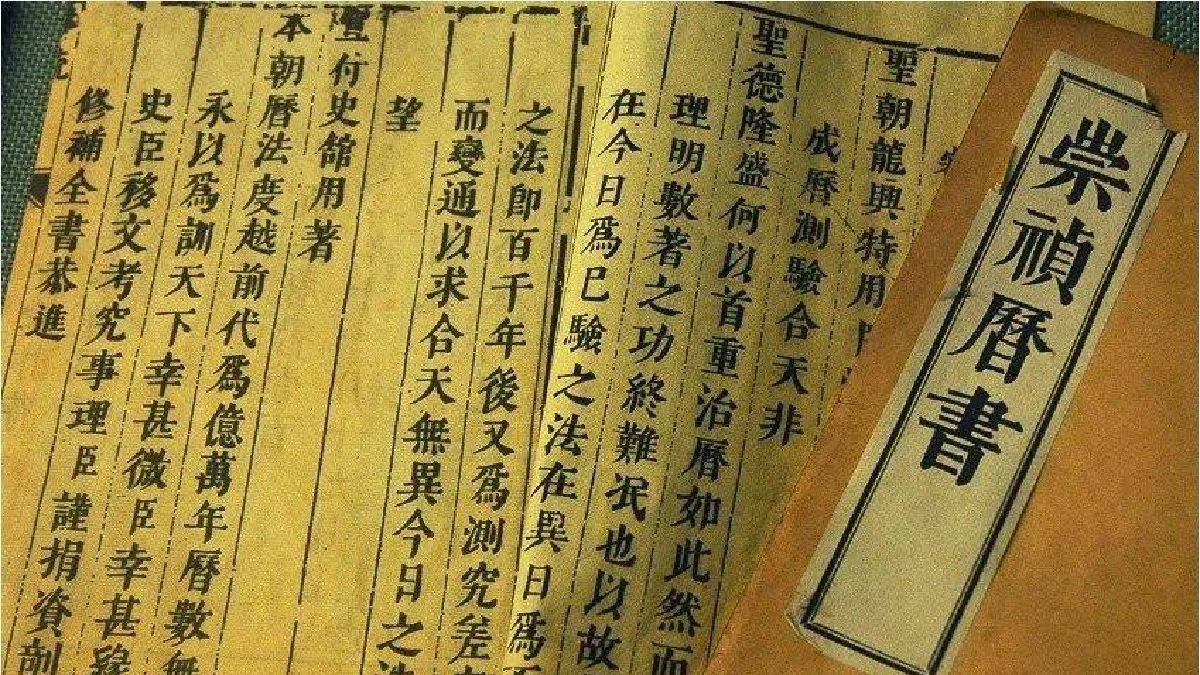 崇禎曆書
聖朝龍興特用
成曆測驗合天非
聖德隆盛何以首重治曆如此然而
理明數著之功終難泯也以故
在今日爲已驗之法在異日爲
之法即百千年後又爲測究差
而變通以求合天無異今日之
望
宣付史舘用著
本朝曆法度越前代爲億萬年曆數無
永以爲訓天下幸甚微臣幸甚緣
史臣移文考究事理臣謹捐資剞
修補全書恭進